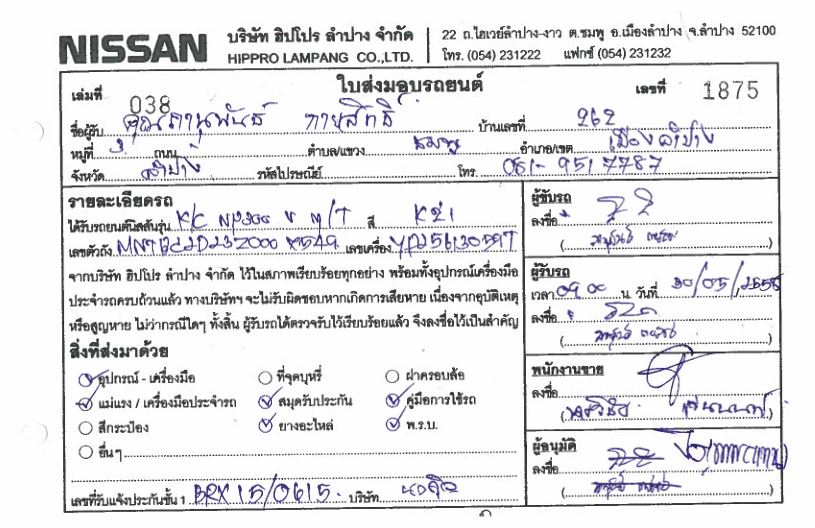 NISSAN
บริษัท ฮิปโปร ลำปาง จำกัด
HIPPRO LAMPANG CO.,LTD.
22 ถ.ไฮเวย์ลำปาง-งาว ต.ชมพู อ.เมืองลำปาง จ.ลำปาง 52100
โทร. (054) 231222 แฟกซ์ (054) 231232
ใบส่งมอบรถยนต์
เล่มที่ 038
เลขที่ 1875
ชื่อผู้รับ คุณภานุพันธ์ กายสิทธิ์ บ้านเลขที่ 262
หมู่ที่ 3 ถนน ตำบล/แขวง ชมพู อำเภอ/เขต เมืองลำปาง
จังหวัด ลำปาง รหัสไปรษณีย์ โทร. 081-9517787
รายละเอียดรถ
ได้รับรถยนต์นิสสันรุ่น K/C NP300 V M/T สี K21
เลขตัวถัง เลขเครื่อง
จากบริษัท ฮิปโปร ลำปาง จำกัด ไว้ในสภาพเรียบร้อยทุกอย่าง พร้อมทั้งอุปกรณ์เครื่องมือ
ประจำรถครบถ้วนแล้ว ทางบริษัทฯ จะไม่รับผิดชอบหากเกิดการเสียหาย เนื่องจากอุบัติเหตุ
หรือสูญหาย ไม่ว่ากรณีใดๆ ทั้งสิ้น ผู้รับรถได้ตรวจรับไว้เรียบร้อยแล้ว จึงลงชื่อไว้เป็นสำคัญ
สิ่งที่ส่งมาด้วย
อุปกรณ์ - เครื่องมือ ที่จุดบุหรี่ ฝาครอบล้อ
แม่แรง / เครื่องมือประจำรถ สมุดรับประกัน คู่มือการใช้รถ
สีกระป๋อง ยางอะไหล่ พ.ร.บ.
อื่นๆ
เลขที่รับแจ้งประกันชั้น 1 BRX15/0615. บริษัท
ผู้ขับรถ
ลงชื่อ
ผู้รับรถ
เวลา 09.00 น. วันที่ 30/05/2558
ลงชื่อ
พนักงานขาย
ลงชื่อ
ผู้อนุมัติ
ลงชื่อ